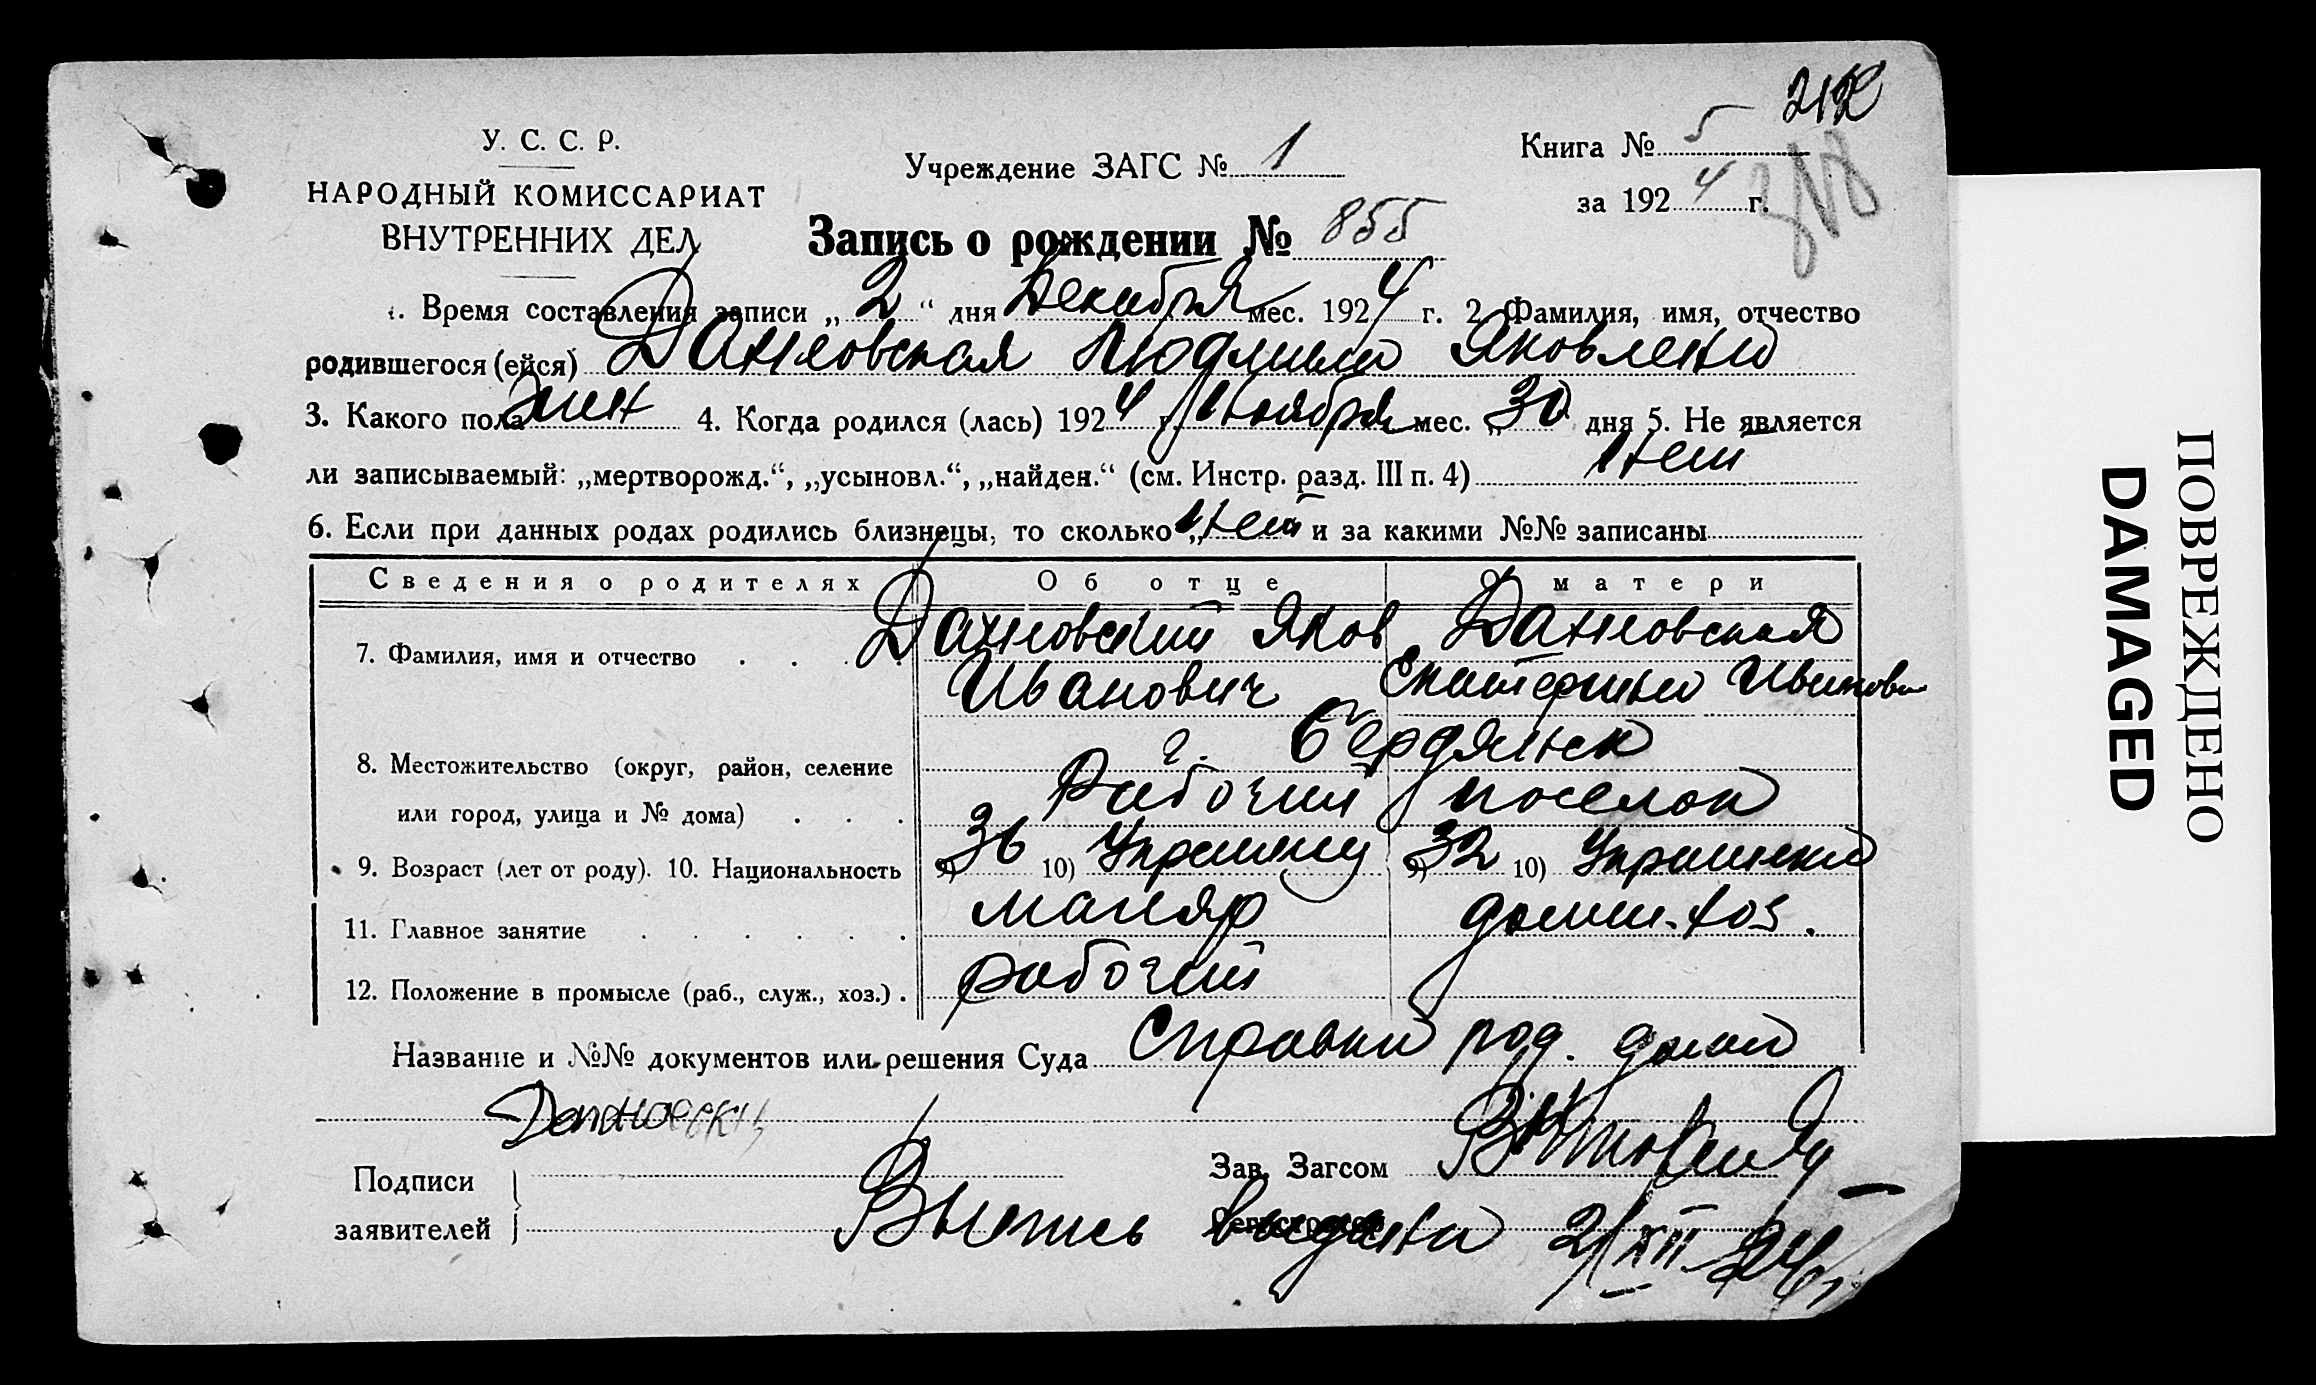 212
У. С. С. Р.
НАРОДНЫЙ КОМИССАРИАТ
ВНУТРЕННИХ ДЕЛ
Учреждение ЗАГС № 1
Книга № 5
за 1924 г.
318
Запись о рождении № 855
1. Время составления записи „2“ дня Декабря мес. 1924 г. 2. Фамилия, имя, отчество
родившегося (ейся) Дахновская Людмила Яковлевна
3. Какого пола жен 4. Когда родился (лась) 1924 г. Ноября мес. „30 дня 5. Не является
ли записываемый: „мертворожд.“, „усыновл.“, „найден.“ (см. Инстр. разд. III п. 4) Нет
6. Если при данных родах родились близнецы, то сколько „Нет и за какими №№ записаны
Сведения о родителях Об отце О матери
7. Фамилия, имя и отчество Дахновский Яков Дахновская
Иванович Екатерина Ивановн
8. Местожительство (округ, район, селение г. Бердянск
или город, улица и № дома) Рабочий поселок
9. Возраст (лет от роду). 10. Национальность 9) 36 10) Украинец 9) 32 10) Украинка
11. Главное занятие маляр домаш. хоз.
12. Положение в промысле (раб., служ., хоз.) рабочий
Название и №№ документов или решения Суда Справка род. дома
Дахновский
Подписи
заявителей
Зав. Загсом
Выпись выдана 2/XII-24г.
ПОВРЕЖДЕНО
DAMAGED